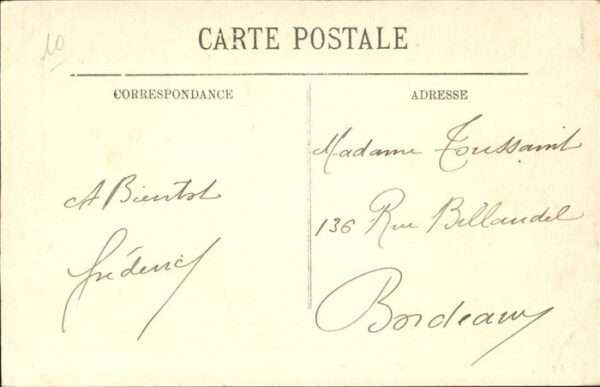 10
CARTE POSTALE
CORRESPONDANCE
A Bientot
frédéric
ADRESSE
Madame Toussaint
136 Rue Billaudel
Bordeaux